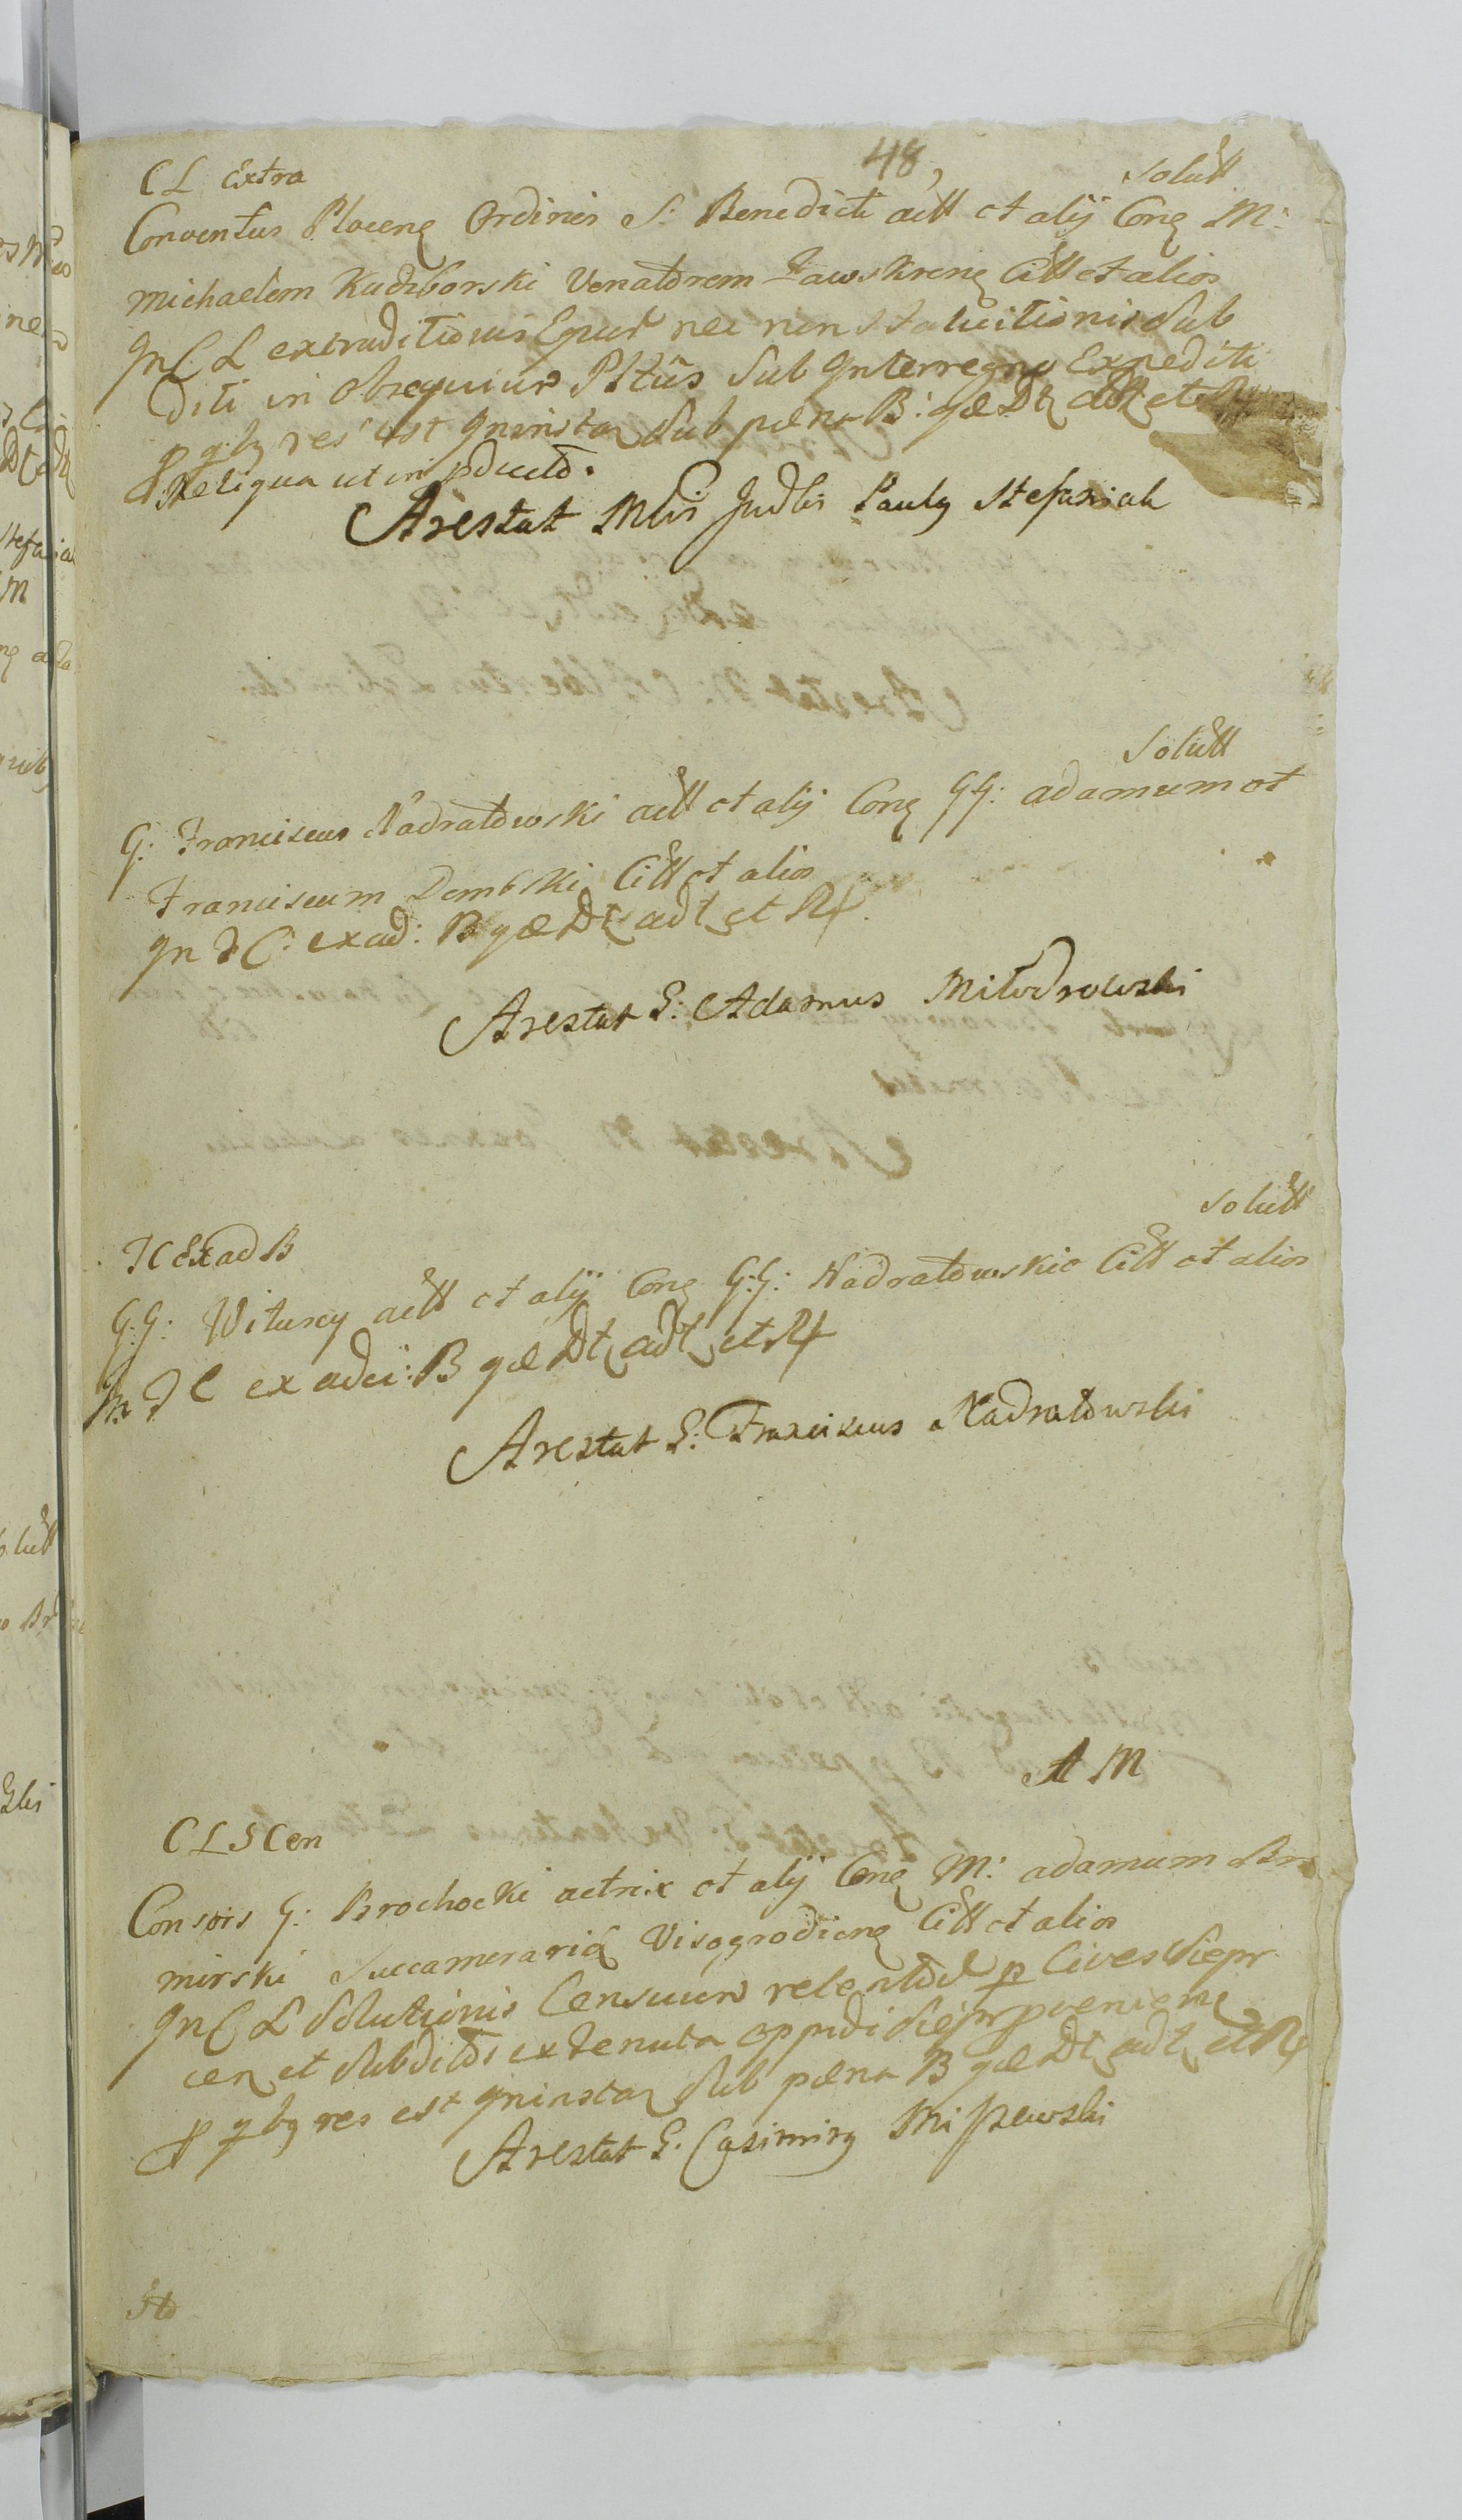 48,
CL Extra
solutt
Conventus Plocens Ordinis S: Benedicti actt et alij Conq M:
Michaelem Kadzborski Venatorem Zawskrens Citt et alios
In C L extraditionis Equor nec non Statuitionis Sub
diti in obsequium Pltus Sub Interregno Expediti
p qbz res est Ininstaz Sub pœna B: qæ Dt adt et R
Reliqua ut in pducto.
Arestat Mlis Judlis Pauly Stefaniak
Solutt
G: Franciscus Nadratowski actt et alij Conq GG: adamum et
Franciscum Dembski Citt et alios
In T C: ex ad: B qæ Dt adt et R
Arestat G: Adamus Miłodrowski
solutt
TC Ex ad B
G.G: Wituscy actt et alij Conq G:G: Nadratowskie Citt et alios
In T C ex adci: B qæ Dt adt et R
Arestat G: Franciscus Nadratowski
A M
CL S Cen
Consors G: Brochocki actrix et alij Conq M: adamum Bro
mirski Succamerarid Visogrodiens Citt et alios
In C L Solutionis Censuum retentor p Cives Siepr
cen et Subditos ex tenuta oppidi Siepr pveniens
p qbz res est Ininstaz Sub pœna B qæ Dt adt et R
Arestat G. Casimirg Miszewski